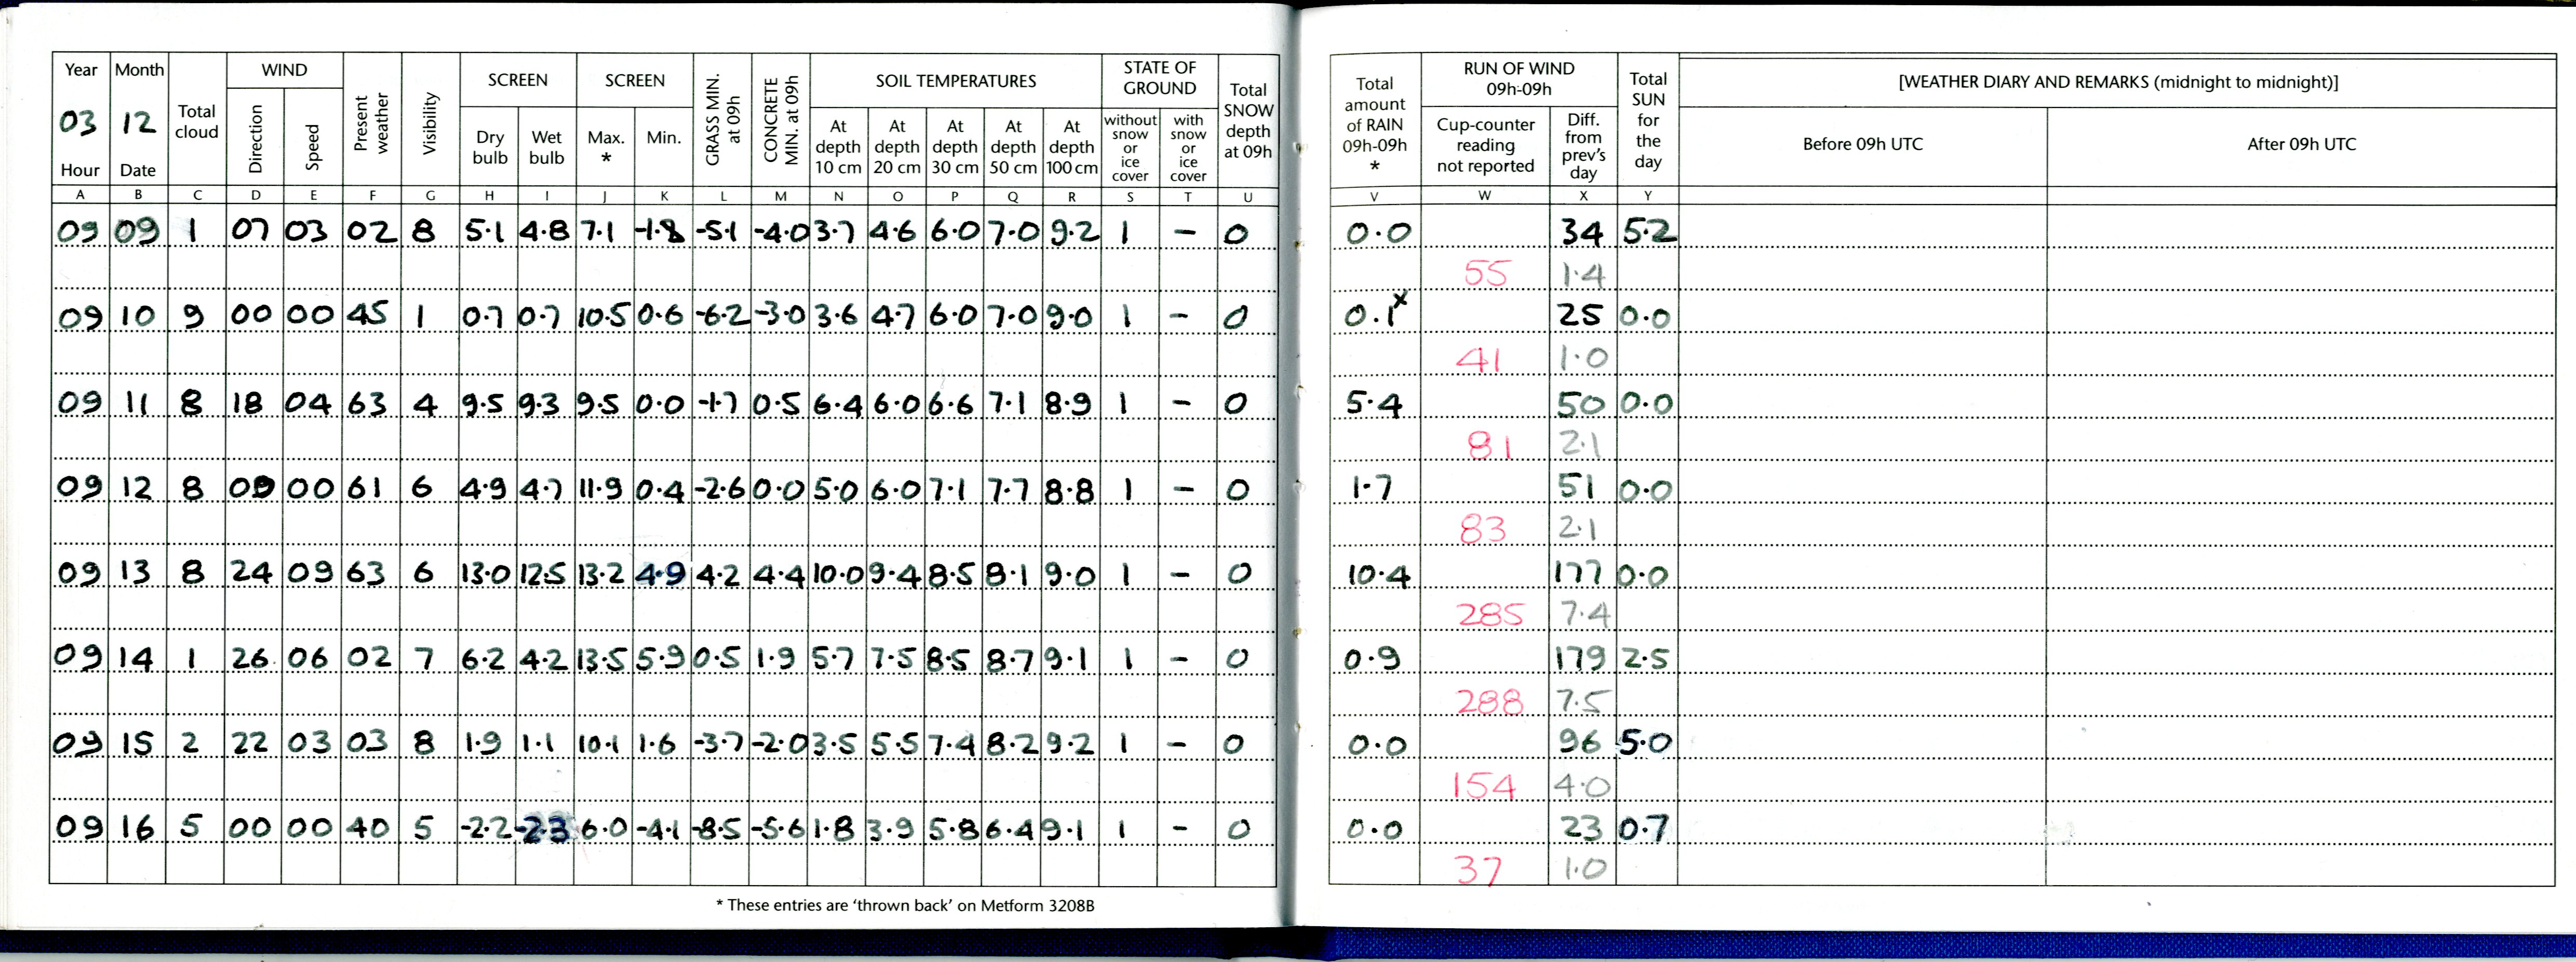 Year Month Total cloud WIND Present weather Visibility SCREEN SCREEN GRASS MIN. at 09h CONCRETE MIN. at 09h SOIL TEMPERATURES STATE OF GROUND Total SNOW depth at 09h
03 12 Direction Speed Dry bulb Wet bulb Max. * Min. At depth 10 cm At depth 20 cm At depth 30 cm At depth 50 cm At depth 100 cm without snow or ice cover with snow or ice cover
Hour Date
A B C D E F G H I J K L M N O P Q R S T U
09 09 1 07 03 02 8 5.1 4.8 7.1 -1.8 -5.1 -4.0 3.7 4.6 6.0 7.0 9.2 1 - 0
09 10 9 00 00 45 1 0.7 0.7 10.5 0.6 -6.2 -3.0 3.6 4.7 6.0 7.0 9.0 1 - 0
09 11 8 18 04 63 4 9.5 9.3 9.5 0.0 -1.7 0.5 6.4 6.0 6.6 7.1 8.9 1 - 0
09 12 8 00 00 61 6 4.9 4.7 11.9 0.4 -2.6 0.0 5.0 6.0 7.1 7.7 8.8 1 - 0
09 13 8 24 09 63 6 13.0 12.5 13.2 4.9 4.2 4.4 10.0 9.4 8.5 8.1 9.0 1 - 0
09 14 1 26 06 02 7 6.2 4.2 13.5 5.9 0.5 1.9 5.7 7.5 8.5 8.7 9.1 1 - 0
09 15 2 22 03 03 8 1.9 1.1 10.1 1.6 -3.7 -2.0 3.5 5.5 7.4 8.2 9.2 1 - 0
09 16 5 00 00 40 5 -2.2 -2.3 6.0 -4.1 -8.5 -5.6 1.8 3.9 5.8 6.4 9.1 1 - 0
* These entries are 'thrown back' on Metform 3208B
Total amount of RAIN 09h-09h * RUN OF WIND 09h-09h Total SUN for the day [WEATHER DIARY AND REMARKS (midnight to midnight)]
Cup-counter reading not reported Diff. from prev's day Before 09h UTC After 09h UTC
V W X Y
0.0 34 5.2
55 1.4
0.1x 25 0.0
41 1.0
5.4 50 0.0
81 2.1
1.7 51 0.0
83 2.1
10.4 177 0.0
285 7.4
0.9 179 2.5
288 7.5
0.0 96 5.0
154 4.0
0.0 23 0.7
37 1.0